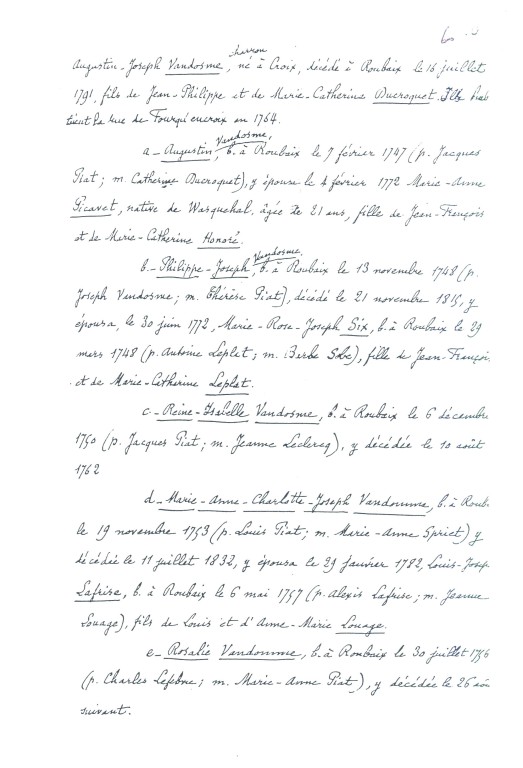 charron
Augustin-Joseph Vandosme, né à Croix, décédé à Roubaix le 16 juillet
1791, fils de Jean-Philippe et de Marie-Catherine Ducroquet. Ils habi
taient la rue de Fourquencroix en 1764.
Vandosme,
a - Augustin, b. à Roubaix le 7 février 1747 (p. Jacques
Piat ; m. Catherine Ducroquet), y épousa le 4 février 1772 Marie-Anne
Picavet, native de Wasquehal, âgée de 21 ans, fille de Jean-François
et de Marie-Catherine Honoré.
Vandosme
b. - Philippe-Joseph, b. à Roubaix le 13 novembre 1748 (p.
Joseph Vandosme ; m. Thérèse Piat), décédé le 21 novembre 1815, y
épousa, le 30 juin 1772, Marie-Rose-Joseph Six, b. à Roubaix le 29
mars 1748 (p. Antoine Leplat ; m. Barbe), fille de Jean-François
et de Marie-Catherine Leplat.
c - Reine-Isabelle Vandosme, b. à Roubaix le 6 décembre
1750 (p. Jacques Piat ; m. Jeanne Leclercq), y décédée le 10 août
1762
d - Marie-Anne-Charlotte-Joseph Vandomme, b. à Roub.
le 19 novembre 1753 (p. Louis Piat ; m. Marie-Anne Spriet) y
décédée le 11 juillet 1832, y épousa le 29 janvier 1782, Louis-Josep
Lafrise, b. à Roubaix le 6 mai 1757 (p. Alexis Lafrise ; m. Jeanne
Louage), fils de Louis et d'Anne-Marie Louage.
e - Rosalie Vandomme, b. à Roubaix le 30 juillet 1756
(p. Charles Lefebvre ; m. Marie-Anne Piat), y décédée le 26 aoû
suivant.